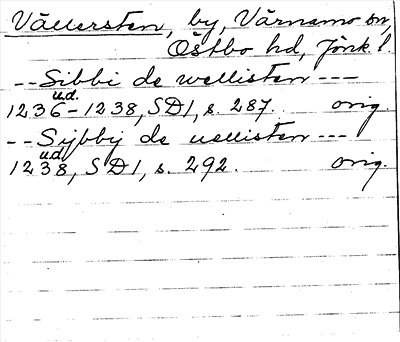 Vällersten, by, Värnamo sn,
Östbo hd, Jönk. l.
-- Sibbi de wellisten ---
u.d.
1236-1238, SD1, s. 287. orig.
-- Sijbbij de uellisten ---
u.d.
1238, SD1, s. 292. orig.